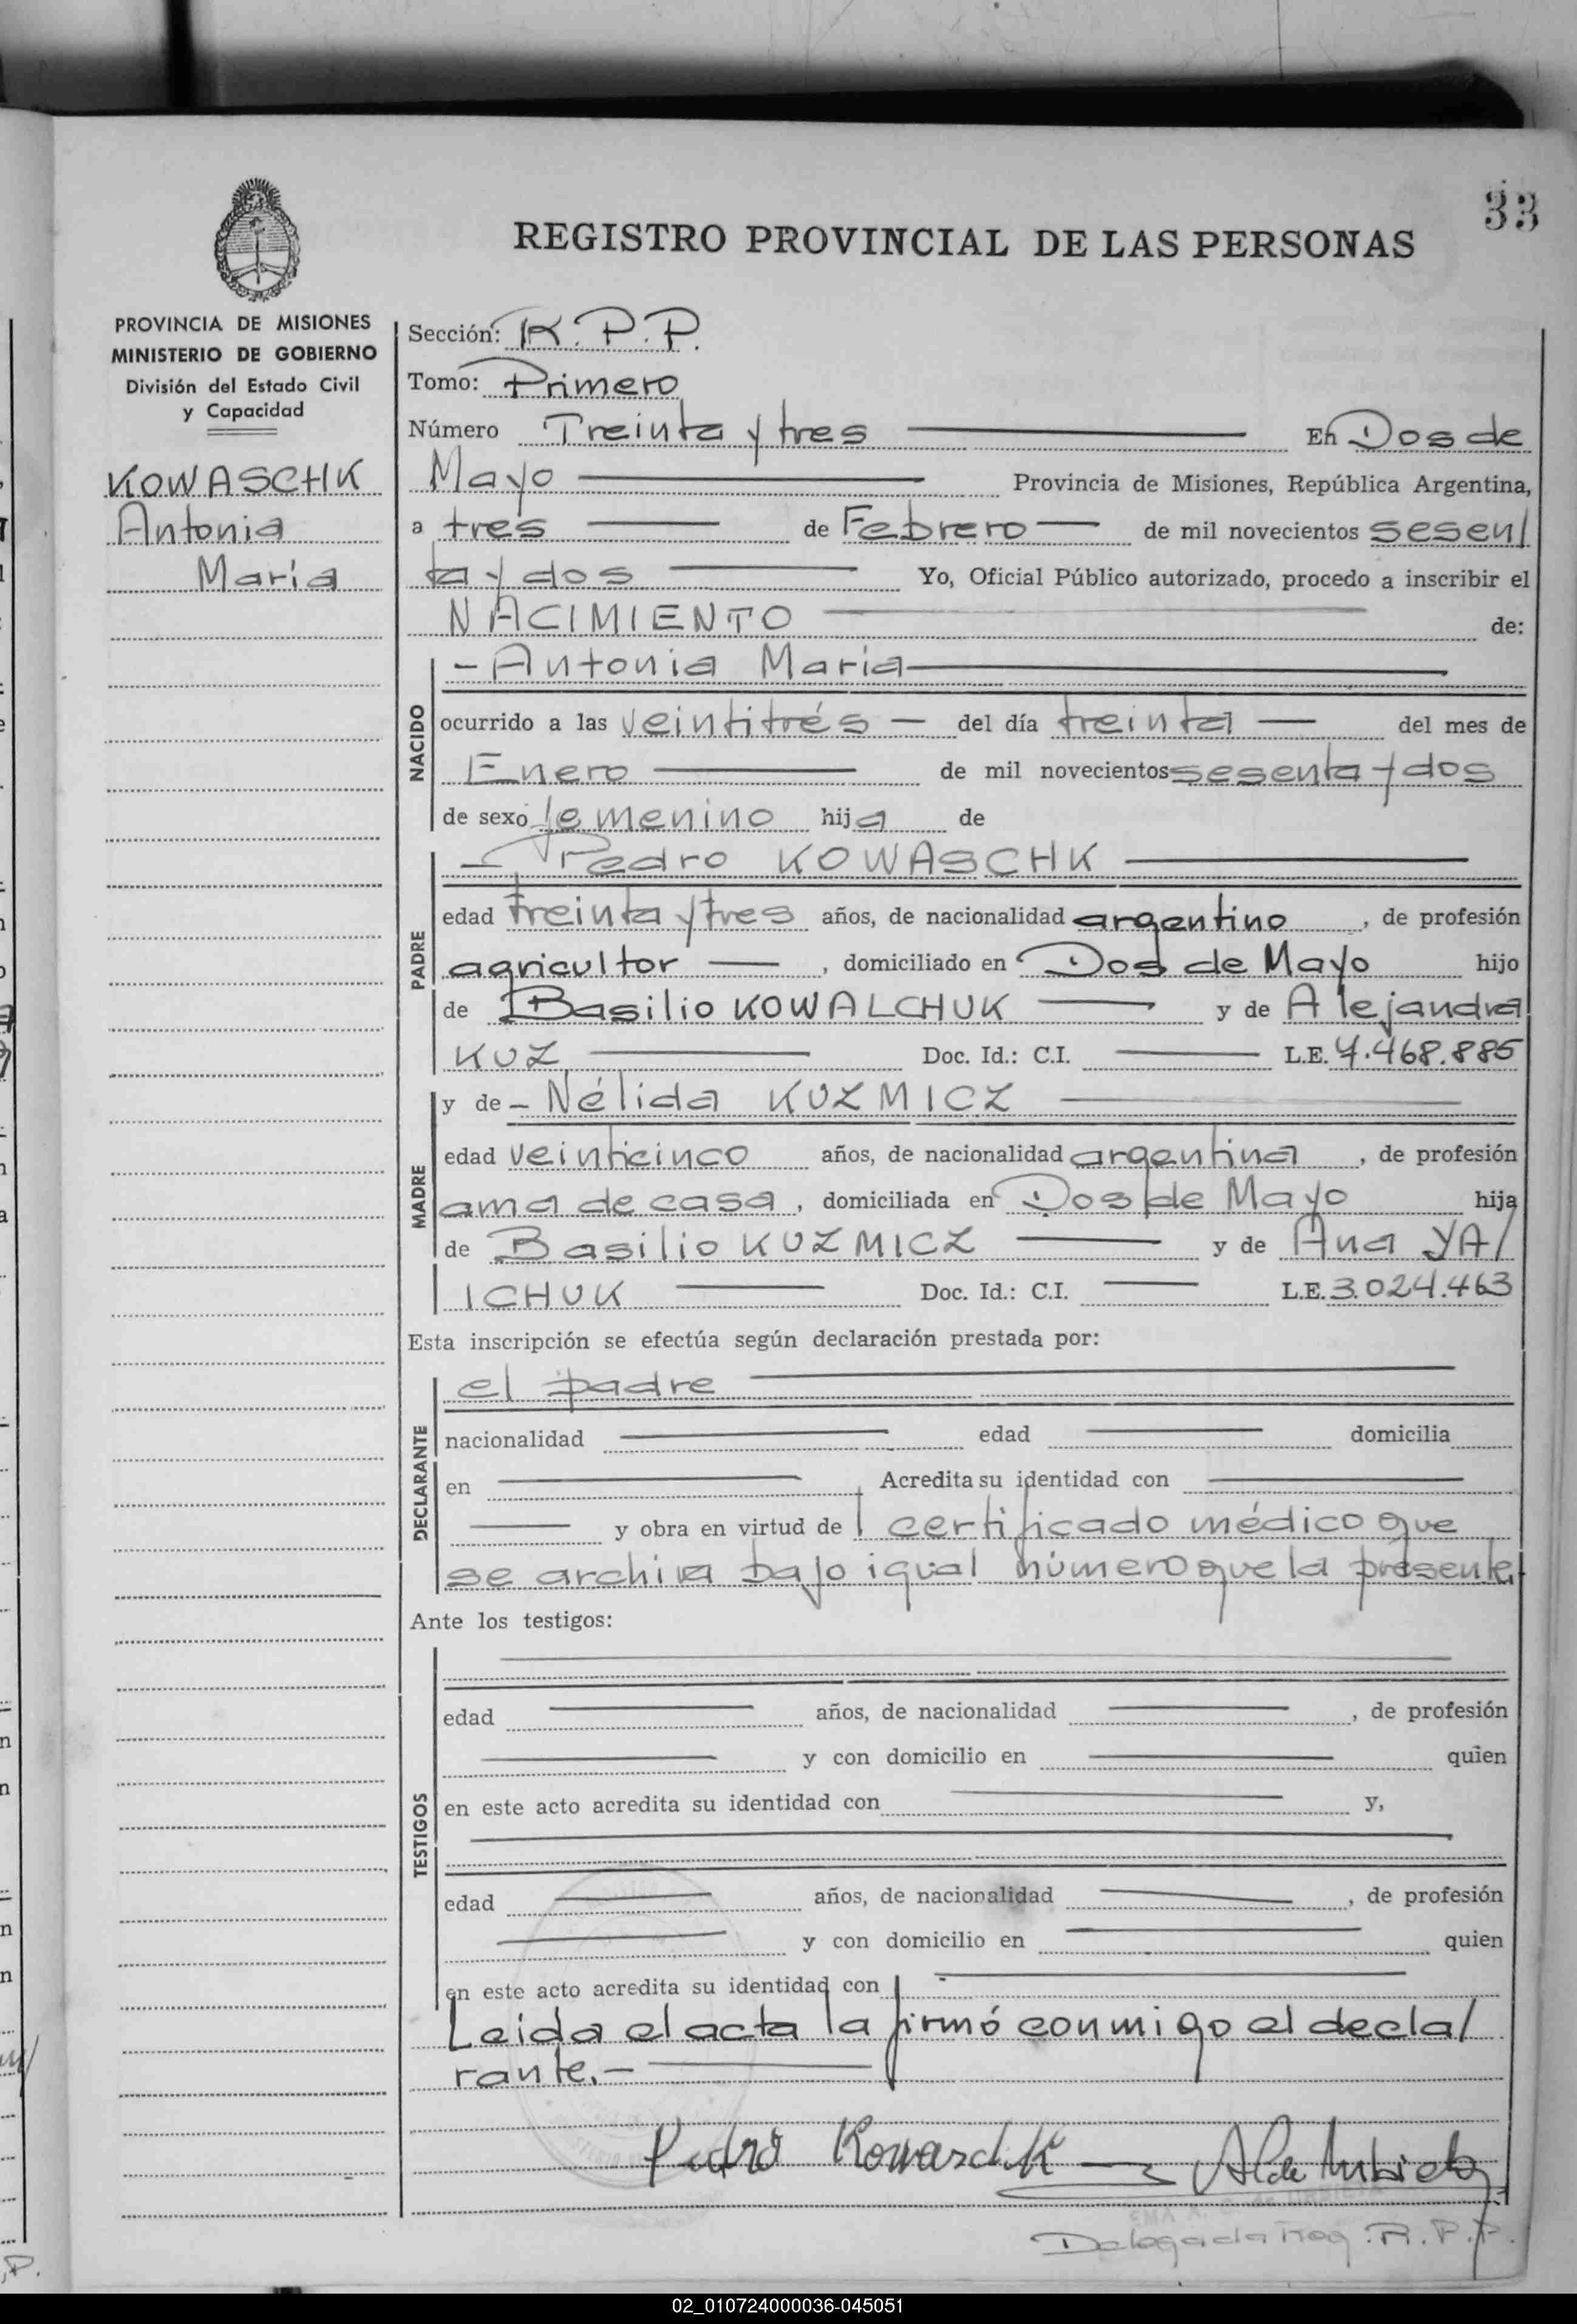 33
REGISTRO PROVINCIAL DE LAS PERSONAS
PROVINCIA DE MISIONES
MINISTERIO DE GOBIERNO
División del Estado Civil
y Capacidad
KOWASCHK
Antonia
Maria
Sección: R.P.P.
Tomo: Primero
Número Treinta y tres En Dos de
Mayo Provincia de Misiones, República Argentina,
a tres de Febrero de mil novecientos sesen/
ta y dos Yo, Oficial Público autorizado, procedo a inscribir el
NACIMIENTO de:
NACIDO
- Antonia Maria
ocurrido a las veintitrés del día treinta del mes de
Enero de mil novecientos sesenta y dos
de sexo femenino hija de
PADRE
- Pedro KOWASCHK
edad treinta y tres años, de nacionalidad argentino, de profesión
agricultor, domiciliado en Dos de Mayo hijo
de Basilio KOWALCHUK y de Alejandra
KUZ Doc. Id.: C.I. L.E. 7.468.885
MADRE
y de - Nélida KUZMICZ
edad veinticinco años, de nacionalidad argentina, de profesión
ama de casa, domiciliada en Dos de Mayo hija
de Basilio KUZMICZ y de Ana YA/
ICHUK Doc. Id.: C.I. L.E. 3.024.463
Esta inscripción se efectúa según declaración prestada por:
DECLARANTE
el padre
nacionalidad edad domicilia
en Acredita su identidad con
y obra en virtud de certificado médico que
se archiva bajo igual número que la presente
Ante los testigos:
TESTIGOS
edad años, de nacionalidad , de profesión
y con domicilio en quien
en este acto acredita su identidad con y,
edad años, de nacionalidad , de profesión
y con domicilio en quien
en este acto acredita su identidad con
Leida el acta la firmó conmigo el decla/
rante.-
Pedro Kowaschk
Delegada Reg. R.P.P.
02_010724000036-045051